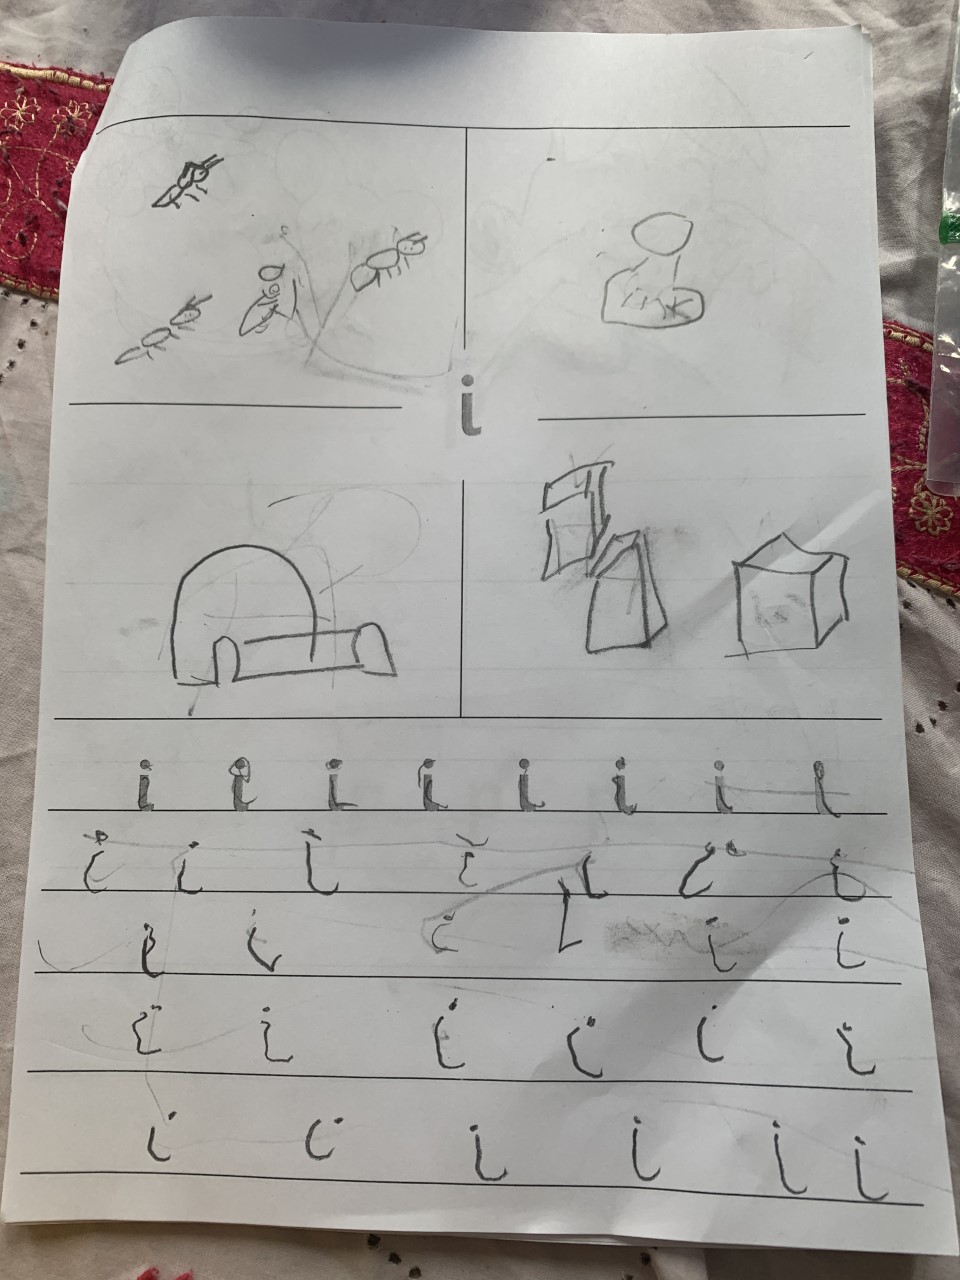 i
i i i i i i i i
i i i i i i i
i i i i i i
i i i i i i
i i i i i i